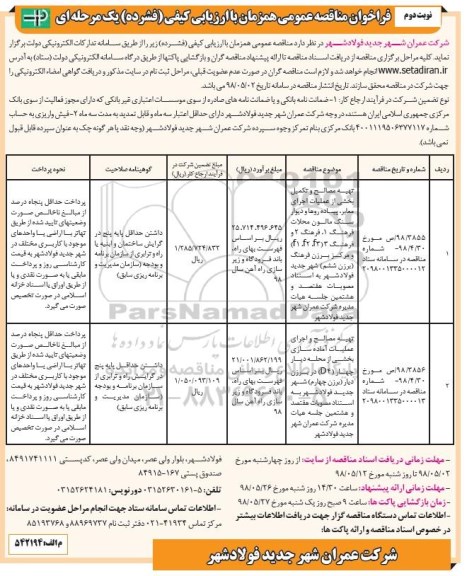 نوبت دوم
فراخوان مناقصه عمومی همزمان با ارزیابی کیفی (فشرده) یک مرحله ای
شرکت عمران شهر جدید فولادشهر در نظر دارد مناقصه عمومی همزمان با ارزیابی کیفی (فشرده) زیر را از طریق سامانه تدارکات الکترونیکی دولت برگزار
نماید. کلیه مراحل برگزاری مناقصه از دریافت اسناد مناقصه تا ارائه پیشنهاد مناقصه گران و بازگشایی پاکتها از طریق درگاه سامانه الکترونیکی دولت (ستاد) به آدرس
www.setadiran.ir انجام خواهد شد و لازم است مناقصه گران در صورت عدم عضویت قبلی، مراحل ثبت نام در سایت مذکور و دریافت گواهی امضاء الکترونیکی را
جهت شرکت در مناقصه محقق سازند. تاریخ انتشار مناقصه در سامانه تاریخ ۹۸/۰۵/۰۲ می باشد.
نوع تضمین شرکت در فرآیند ارجاع کار: ۱- ضمانت نامه بانکی و یا ضمانت نامه های صادره از سوی موسسات اعتباری غیر بانکی که دارای مجوز فعالیت از سوی بانک
مرکزی جمهوری اسلامی ایران هستند، در وجه شرکت عمران شهر جدید فولادشهر دارای حداقل اعتبار سه ماه و قابل تمدید به مدت سه ماه ۲- فیش واریزی به حساب
شماره ۴۰۰۱۱۱۹۵۰۶۳۷۷۱۱۷ بانک مرکزی بنام تمرکز وجوه سپرده شرکت عمران شهر جدید فولادشهر (وجه نقد یا هر گونه چک به عنوان سپرده قابل قبول
نمی باشد).
ردیف
شماره و تاریخ مناقصه
موضوع مناقصه
مبلغ برآورد (ریال)
مبلغ تضمین شرکت در فرآیند ارجاع کار (ریال)
گوهینامه صلاحیت
نحوه پرداخت
۱
۹۸/۳۸۵۵/ص مورخ
۹۸/۴/۳۰- شماره
مناقصه در سامانه ستاد
۲۰۹۸۰۰۱۳۳۵۰۰۰۰۱۲
تهیه مصالح و تکمیل
بخشی از عملیات اجرای
معابر، پیاده روها و دیوار
سنگ مالون محلات
فرهنگ ۱، فرهنگ ۲ و
فرهنگ ۳ (f۱،f۲،f۳)
و مرکز برزن فرهنگ
(برزن ششم) شهر جدید
فولادشهر به استناد
مصوبات هفتصد و
هشتمین جلسه هیات
مدیره شرکت عمران شهر
جدید فولادشهر
۲۵,۷۱۴,۴۹۶,۶۴۵
ریال بر اساس
فهرست بهای راه،
باند فرودگاه و زیر
سازی راه آهن سال
۹۸
۱/۲۸۵/۷۲۴/۸۳۲
ریال
داشتن حداقل پایه پنج در
گرایش ساختمان و ابنیه یا
راه و ترابری از سازمان برنامه
و بودجه (سازمان مدیریت و
برنامه ریزی سابق)
پرداخت حداقل پنجاه درصد
از مبالغ ناخالص صورت
وضعیتهای تایید شده از طریق
تهاتر با اراضی یا واحدهای
موجود با کاربری مختلف در
شهر جدید فولادشهر به قیمت
کارشناسی روز و پرداخت
مابقی یا به صورت نقدی و یا
از طریق اوراق یا اسناد خزانه
اسلامی در صورت تخصیص
صورت می گیرد.
۲
۹۸/۳۸۵۶/ص مورخ
۹۸/۴/۳۰- شماره
مناقصه در سامانه ستاد
۲۰۹۸۰۰۱۳۳۵۰۰۰۰۱۳
تهیه مصالح و اجرای
عملیات آماده سازی
بخشی از محله دیار
چهار (D۴) در برزن
دیار (برزن چهارم) شهر
جدید فولادشهر به
استناد مصوبات هفتصد
و هشتمین جلسه هیات
مدیره شرکت عمران شهر
جدید فولادشهر
۲۱/۰۰۱/۸۶۲/۱۹۹
ریال بر اساس
فهرست بهای راه،
باند فرودگاه و زیر
سازی راه آهن سال
۹۸
۱/۰۵۰/۰۹۳/۱۰۹
ریال
داشتن حداقل پایه پنج
در گرایش راه و ترابری از
سازمان برنامه و بودجه
(سازمان مدیریت و
برنامه ریزی سابق)
پرداخت حداقل پنجاه درصد
از مبالغ ناخالص صورت
وضعیتهای تایید شده از طریق
تهاتر با اراضی یا واحدهای
موجود با کاربری مختلف در
شهر جدید فولادشهر به قیمت
کارشناسی روز و پرداخت
مابقی یا به صورت نقدی و یا
از طریق اوراق یا اسناد خزانه
اسلامی در صورت تخصیص
صورت می گیرد.
- مهلت زمانی دریافت اسناد مناقصه از سایت: از روز چهارشنبه مورخ
۹۸/۰۵/۰۲ تا روز شنبه مورخ ۹۸/۰۵/۱۲
- مهلت زمانی ارائه پیشنهاد: ساعت ۱۴/۳۰ روز شنبه مورخ ۹۸/۰۵/۲۶
- زمان بازگشایی پاکت ها: ساعت ۹ صبح روز یک شنبه مورخ ۹۸/۰۵/۲۷
- اطلاعات تماس دستگاه مناقصه گزار جهت دریافت اطلاعات بیشتر
در خصوص اسناد مناقصه و ارائه پاکت ها:
فولادشهر، بلوار ولی عصر، میدان ولی عصر، کدپستی ۸۴۹۱۷۴۱۱۱۱،
صندوق پستی ۱۶۷-۸۴۹۱۵
تلفن: ۵-۰۳۱۵۲۶۳۰۱۶۱ دورنویس: ۰۳۱۵۲۶۲۴۱۸۱
- اطلاعات تماس سامانه ستاد جهت انجام مراحل عضویت در سامانه:
مرکز تماس ۴۱۹۳۴-۰۲۱ دفتر ثبت نام ۸۸۹۶۹۷۳۷ و ۸۵۱۹۳۷۶۸
م الف: ۵۴۲۱۹۴
شرکت عمران شهر جدید فولادشهر